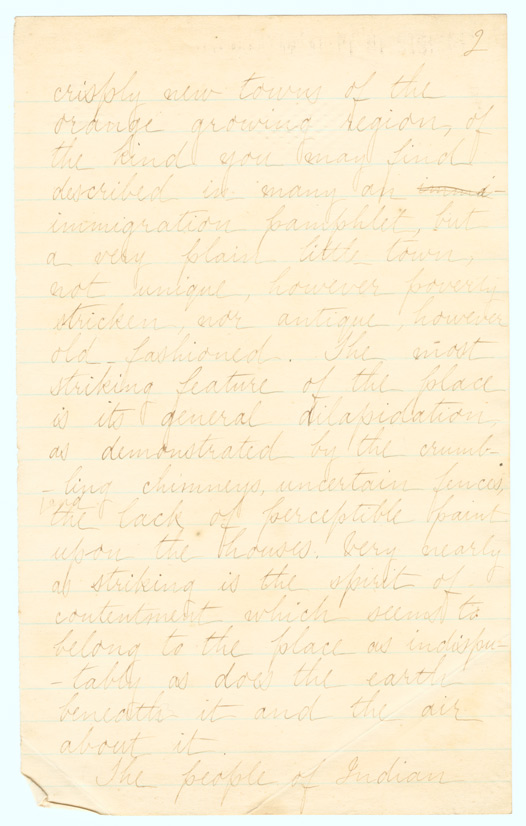 2
crisply new towns of the
orange growing region, of
the kind you may find
described in many an immi-
immigration pamphlet, but
a very plain little town,
not unique, however poverty
stricken, nor antique, however
old-fashioned. The most
striking feature of the place
is its general dilapidation,
as demonstrated by the crumb-
-ling chimneys, uncertain fences,
the lack of perceptible paint
upon the houses. Very nearly
as striking is the spirit of
contentment which seems to
belong to the place as indispu-
-tably as does the earth
beneath it and the air
about it.
The people of Indian